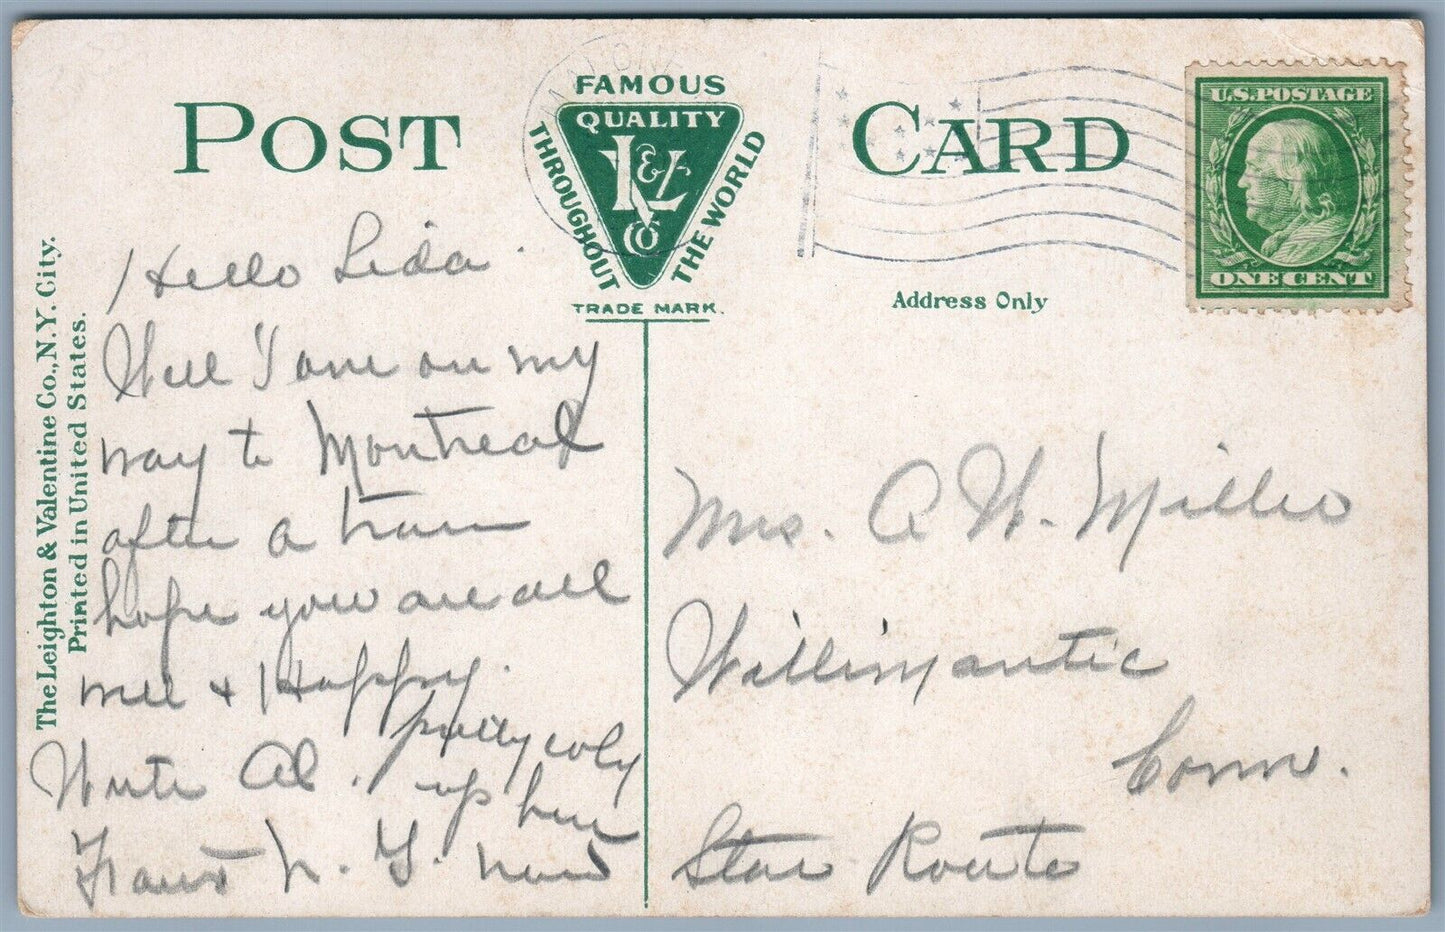 POST CARD
FAMOUS
QUALITY
THROUGHOUT
THE WORLD
L & V
Co
TRADE MARK.
U.S. POSTAGE
ONE CENT
Address Only
The Leighton & Valentine Co., N.Y. City.
Printed in United States.
Hello Lida.
Well I am on my
way to Montreal
after a train
hope you are all
well & Happy.
pretty coly
up here
Write Al.
N. Y. now
Mrs. A W. Miller
Willimantic
Conn.
Star Route